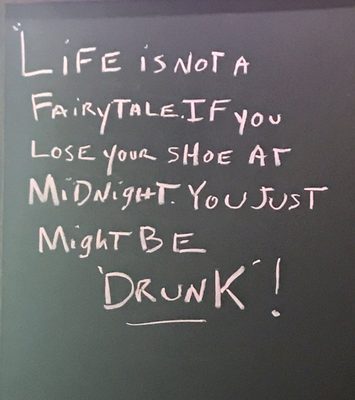 "LiFE iS NOT A
FAiRyTALE. IF you
LOSE your SHOE AT
MiDNigHT. YOU JUST
MigHT BE
"DRUNK"!